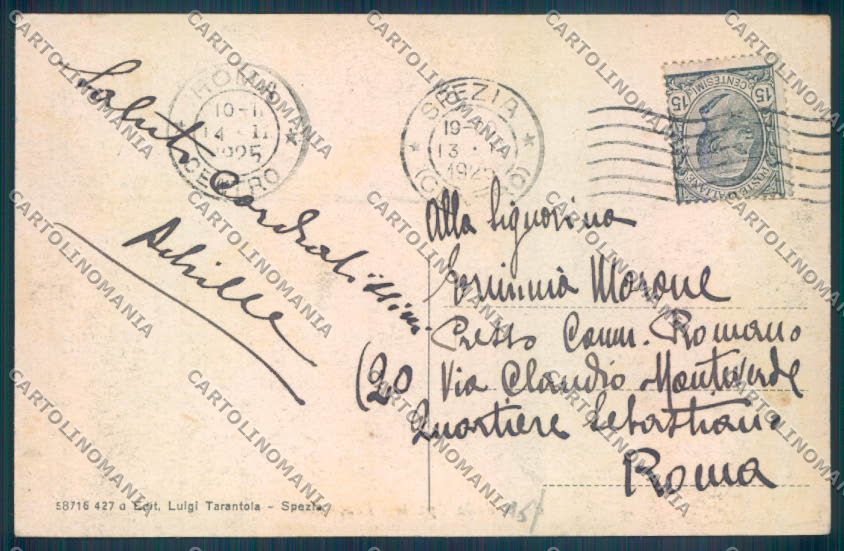 Saluti Cordialissimi
Achille
ROMA
10-11
14 · II
1925
CENTRO
SPEZIA
19-
13 ·
1925
15 CENTESIMI 15
POSTE ITALIANE
Alla Signorina
Corinnia Morone
Presso Comm. Romano
(20 Via Claudio Monteverde
Quartiere Sebastiani
Roma
58716 427 a Edit. Luigi Tarantola - Spezia
CARTOLINOMANIA